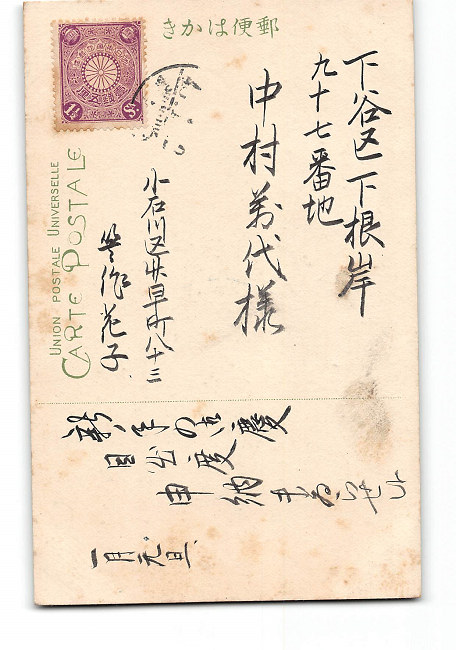 郵便はかき
UNION POSTALE UNIVERSELLE
CARTE POSTALE
下谷区下根岸
九十七番地
中村萬代様
小石川区
町八十三
花子
新年の吉慶
目出度
申納まゐらせ
一月元旦